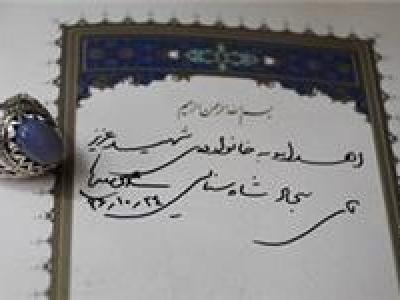 بسم الله الرحمن الرحیم
اهداء به خانواده‌ی شهید عزیز
سجاد شاه سنائی
۹۶،۱۰،۲۴